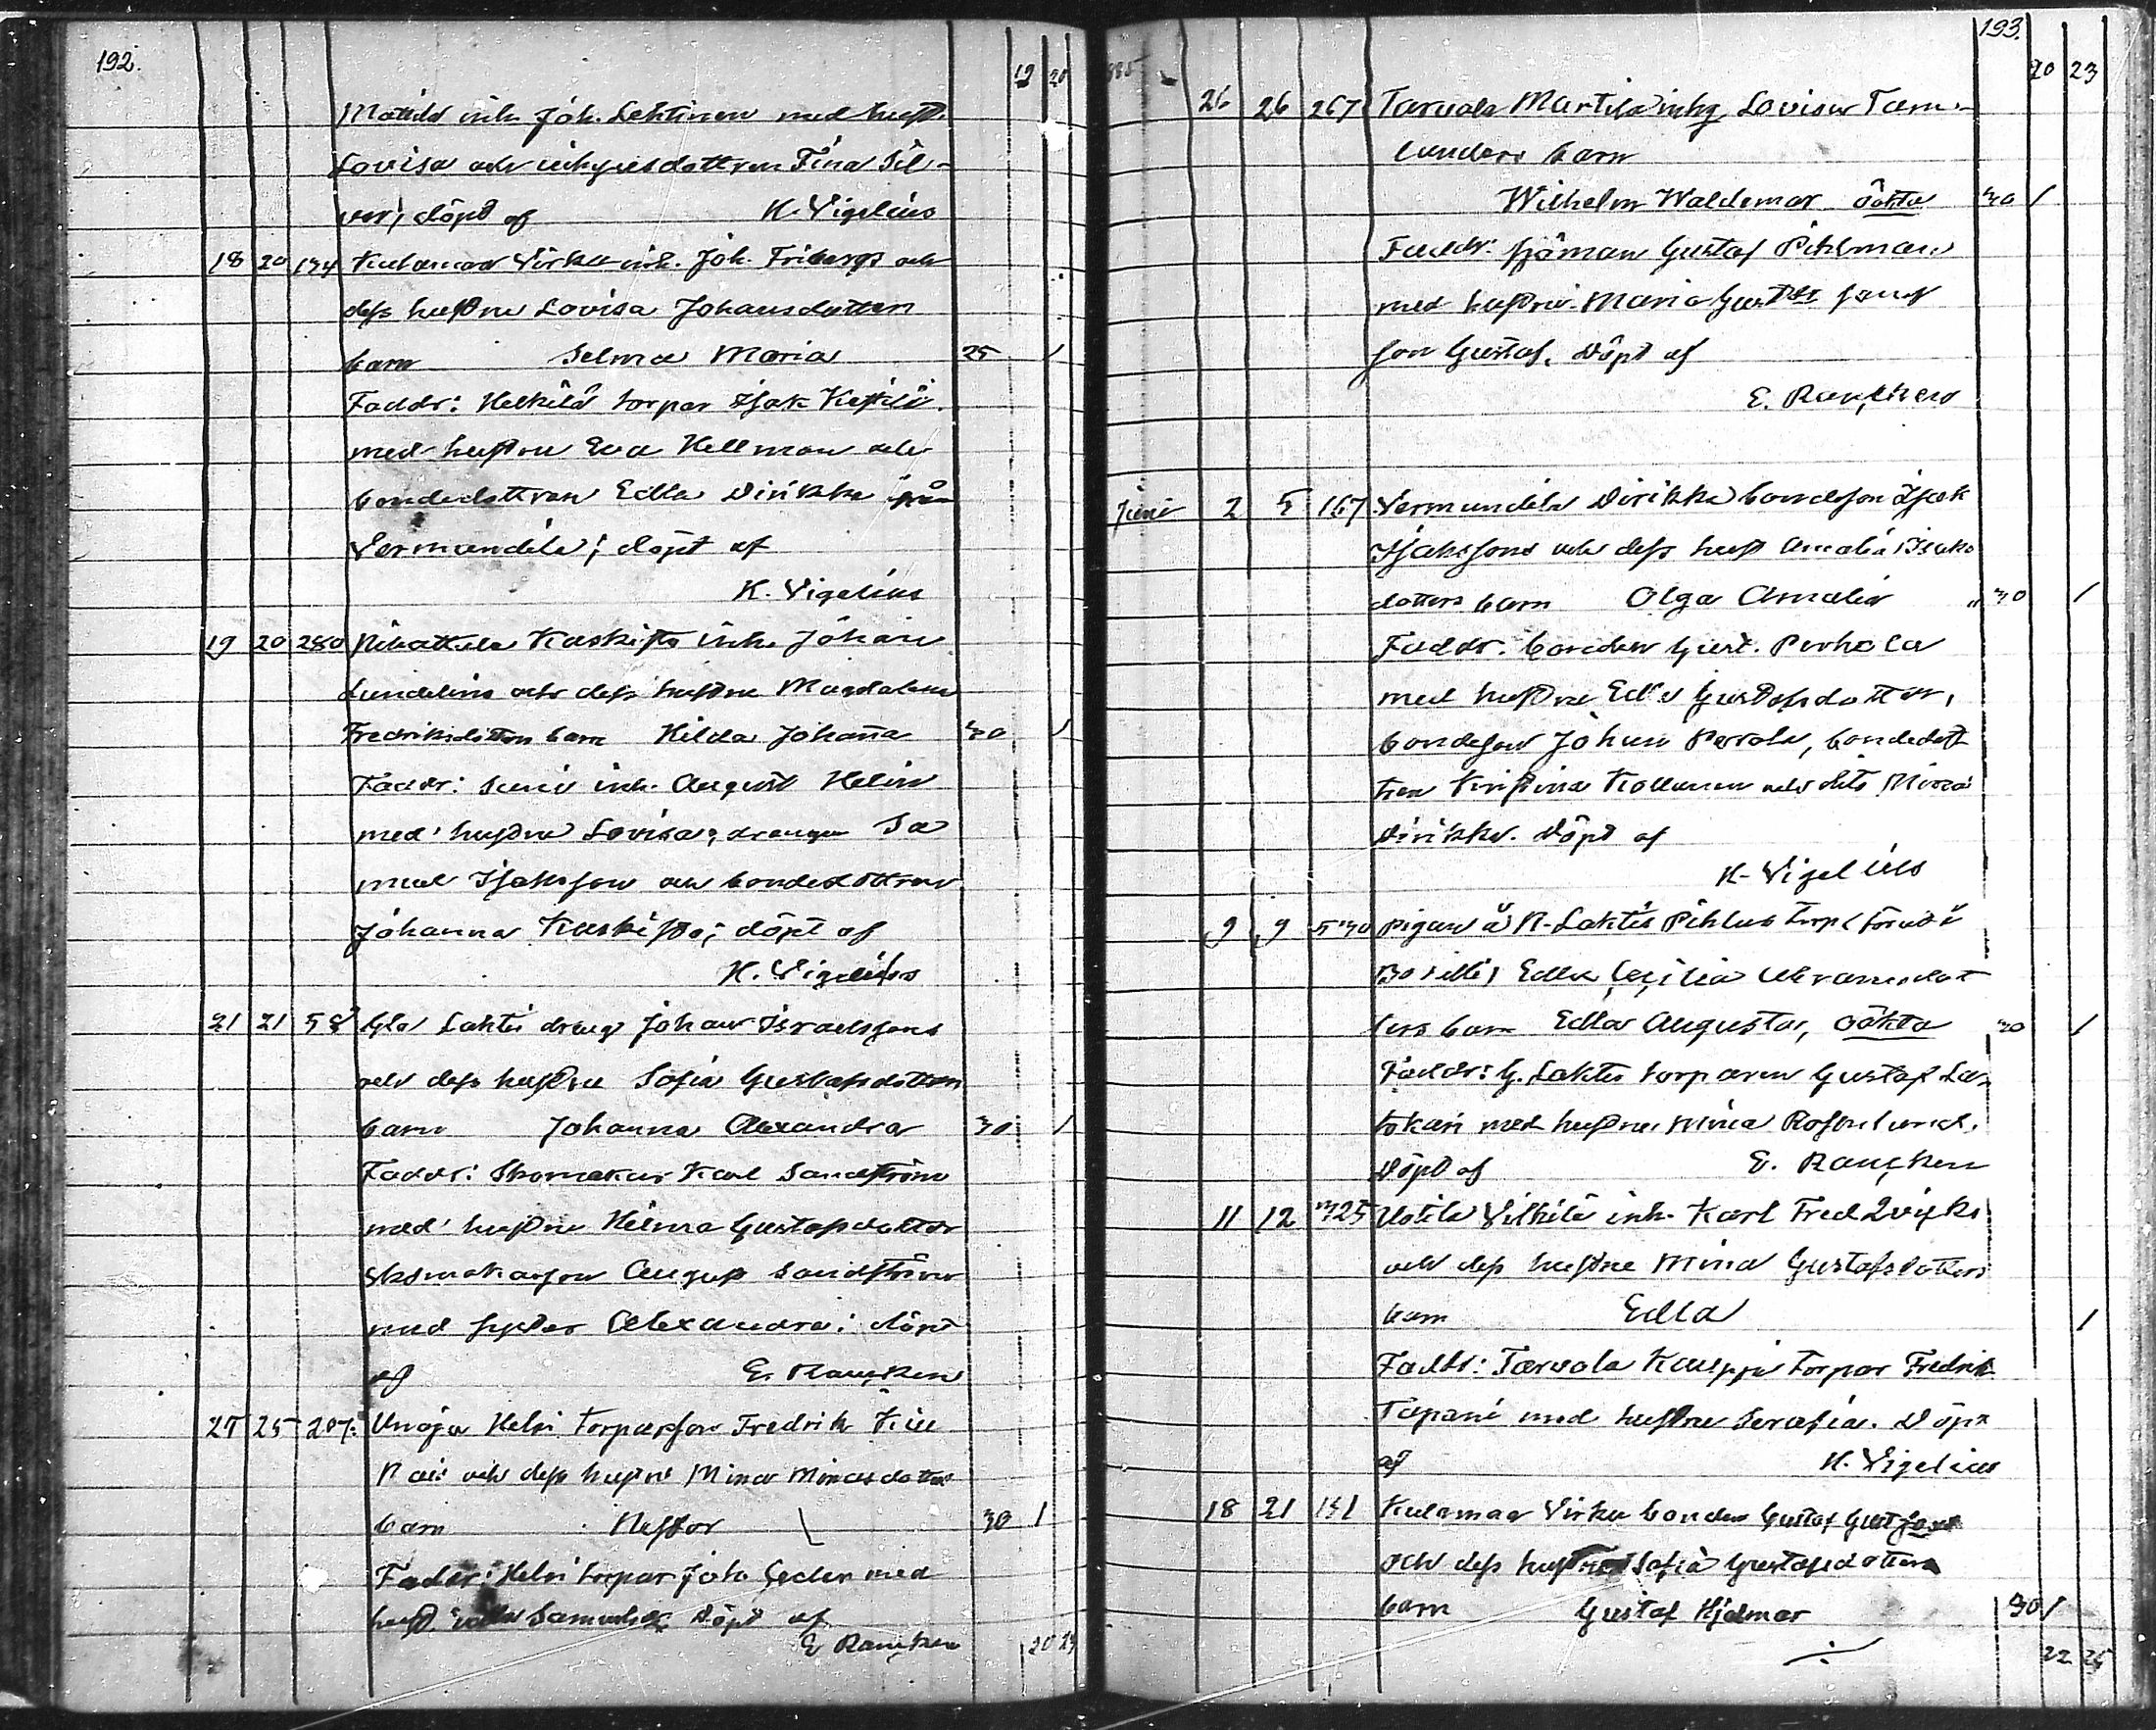 192.
19 20
Matilds inh. Joh. Lehtinen med hust.
Lovisa och inhysesdottren Fina Sil-
ver; döpt af K. Vigelius
18 20 134 Kulamaa Virkku inh. Joh. Fribergs och
dess hustru Lovisa Johansdotters
barn Selma Maria 25 1
Faddr: Heikilä torpar Isak
med hustru Eva Hellman och
bondedottren Edla Dirikka från
Vermundila; döpt af
K. Vigelius
19 20 280 Kaskisto inh. Johan
Lundelins och dess hustru Magdalena
Fredriksdotters barn Hilda Johanna 30 1
Faddr: inh. August Helin
med hustru Lovisa, drängen Sa
muel Isaksson och bondedottren
Johanna Kaskisto; döpt af
K. Vigelius
21 21 58 Laktis dräng Johan Israelssons
och dess hustru Sofia Gustafsdotters
barn Johanna Alexandra 30 1
Faddr: Skomakar Karl Sandström
med hustru Helma Gustafsdotter
skomakarson August Sandström
med syster Alexandra; döpt
af E. Rancken
25 25 207 Unaja Helsi torparson Fredrik
och dess hustru Mina
barn Nestor 30 1
Faddr: Helsi torpar Joh. Ceder med
hust. Döpt af
E Rancken 20 23
193.
20 23
26 26 267 Tarvola Martila inhg Lovisa Tam-
lunders barn
Wilhelm Waldemar oäkta 30 1
Faddr: sjöman Gustaf Pihlman
med hustru Maria samt
son Gustaf. Döpt af
E. Rancken
Juni 2 5 167 Vermundila Dirikka bondeson Isak
Isakssons och dess hust Amalia Isaks
dotters barn Olga Amalia 30 1
Faddr: bonden Gust. Perhola
med hustru Edla Gustafsdotter,
bondeson Johan Perrola, bondedott
ren Kristina Kollanen och dito Mina
Dirikka. Döpt af
K. Vigelius
9 9 530 pigan å N. Laktis Pihlus torp (förut i
Edla Cecilia Abramsdot
ters barn Edla Augusta, oäkta 30 1
Faddr: G. Laktis torparen Gustaf La-
tokari med hustru Mina Rosenlund.
Döpt af E. Rancken
11 12 325 Uotila Vilkilä inh. Karl Fred Qviks
och dess hustru Mina Gustafsdotters
barn Edla 1
Faddr: Tarvola Kauppi torpar Fredrik
Tapani med hustru Serafia. Döpt
af K. Vigelius
18 21 131 Kulamaa Virkku bonden Gustaf Gustfsons
och dess hustru Sofia Gustafsdotters
barn Gustaf Hjalmar 30 1
22 24